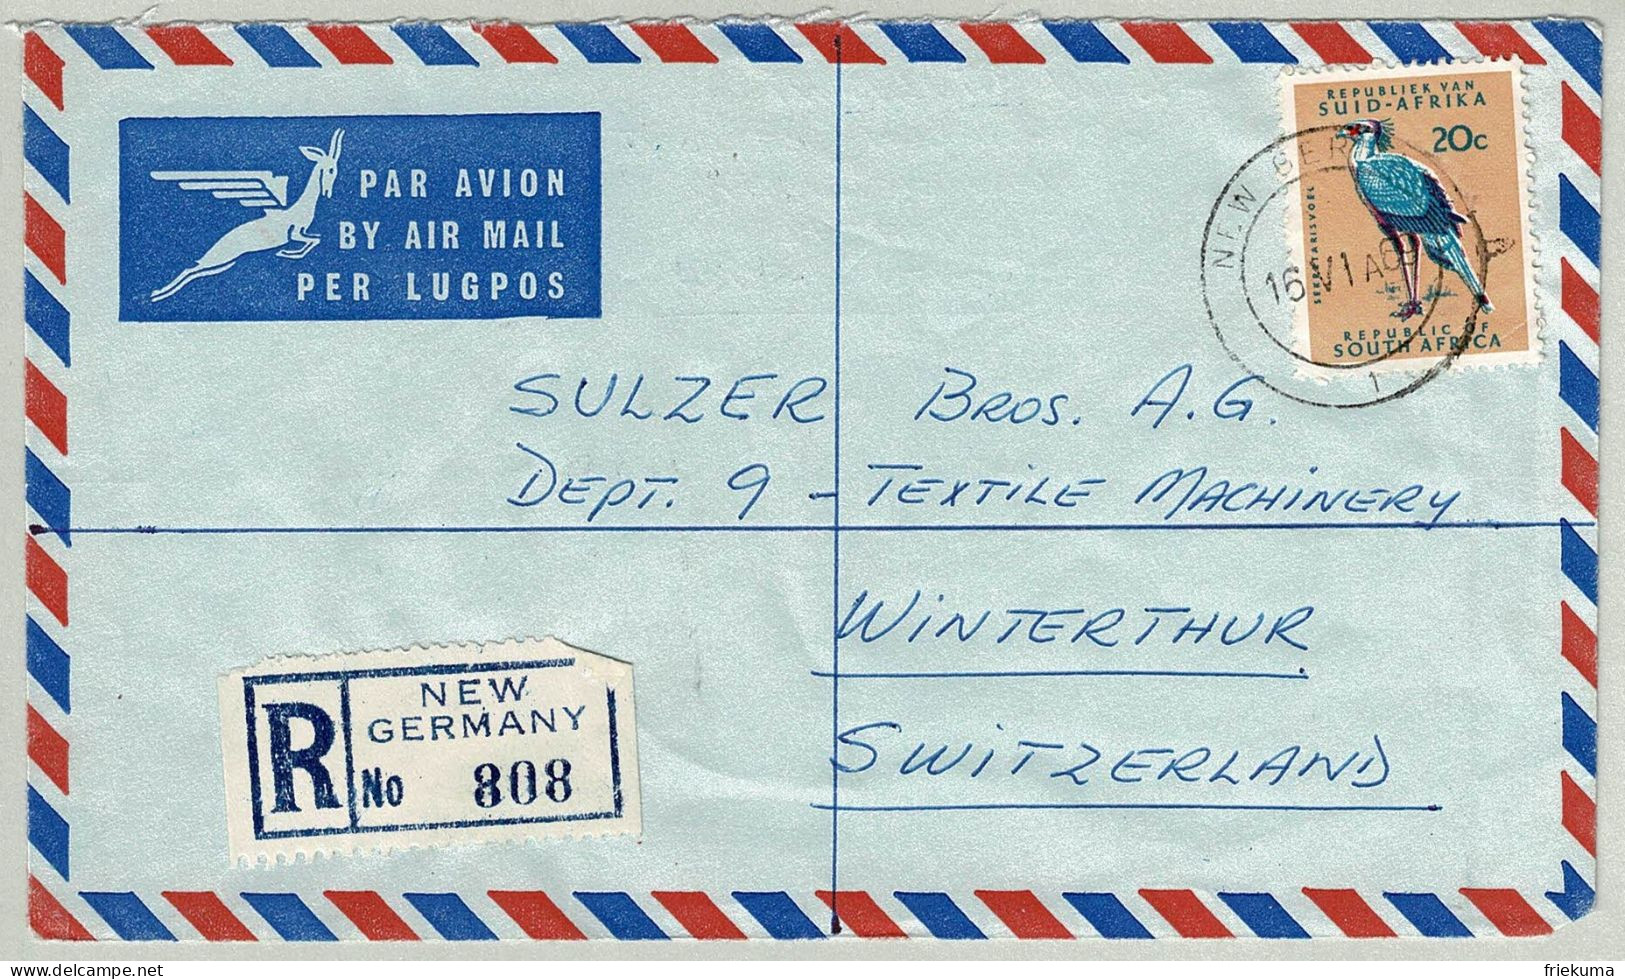 PAR AVION
BY AIR MAIL
PER LUGPOS
REPUBLIEK VAN
SUID-AFRIKA
20c
SEKRETARISVOËL
REPUBLIC OF
SOUTH AFRICA
NEW GER
16 VI A09
1
SULZER BROS. A.G.
DEPT. 9 - TEXTILE MACHINERY
WINTERTHUR
SWITZERLAND
R
NEW
GERMANY
No 808
delcampe.net
friekuma